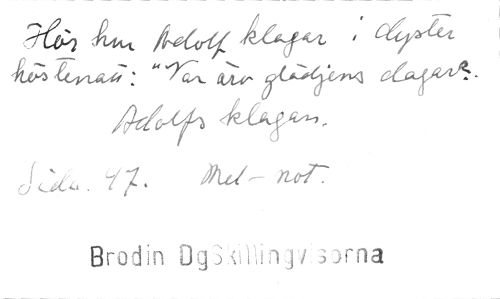 Hör hur Adolf klagar i dyster
höstenatt: "Var äro glädjens dagar?.
Adolfs klagan.
Sida. 47. Mel-not.
Brodin DgSkillingvisorna